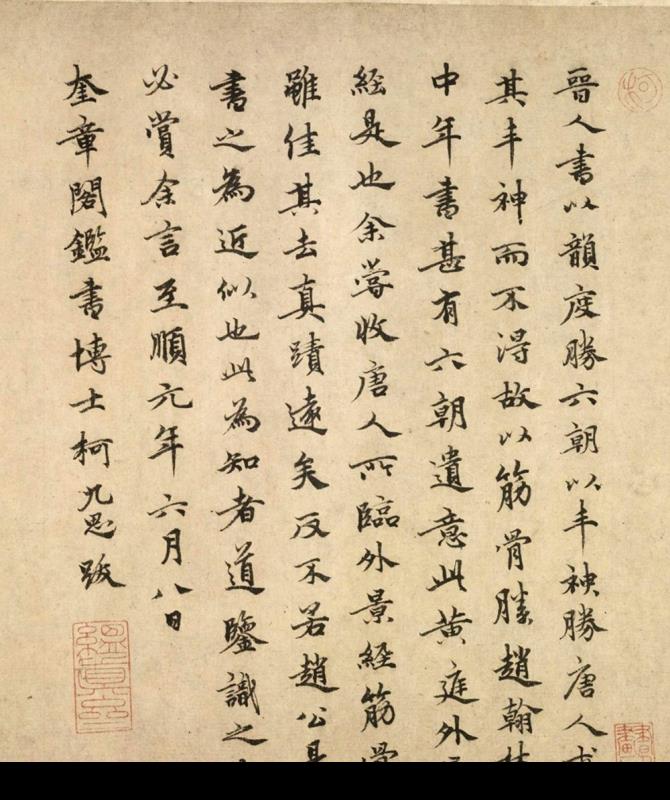 晉人書以韻度勝六朝以丰神勝唐人求
其丰神而不得故以筋骨勝趙翰林
中年書甚有六朝遺意此黃庭外
經是也余嘗收唐人所臨外景經筋骨
雖佳其去真蹟遠矣反不若趙公是
書之為近似也此為知者道鑒識之
必賞余言至順元年六月八日
奎章閣鑑書博士柯九思跋
柯